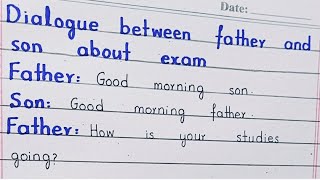 Date:
Dialogue between father and
son about exam
Father: Good morning son.
Son: Good morning father.
Father: How is your studies
going?